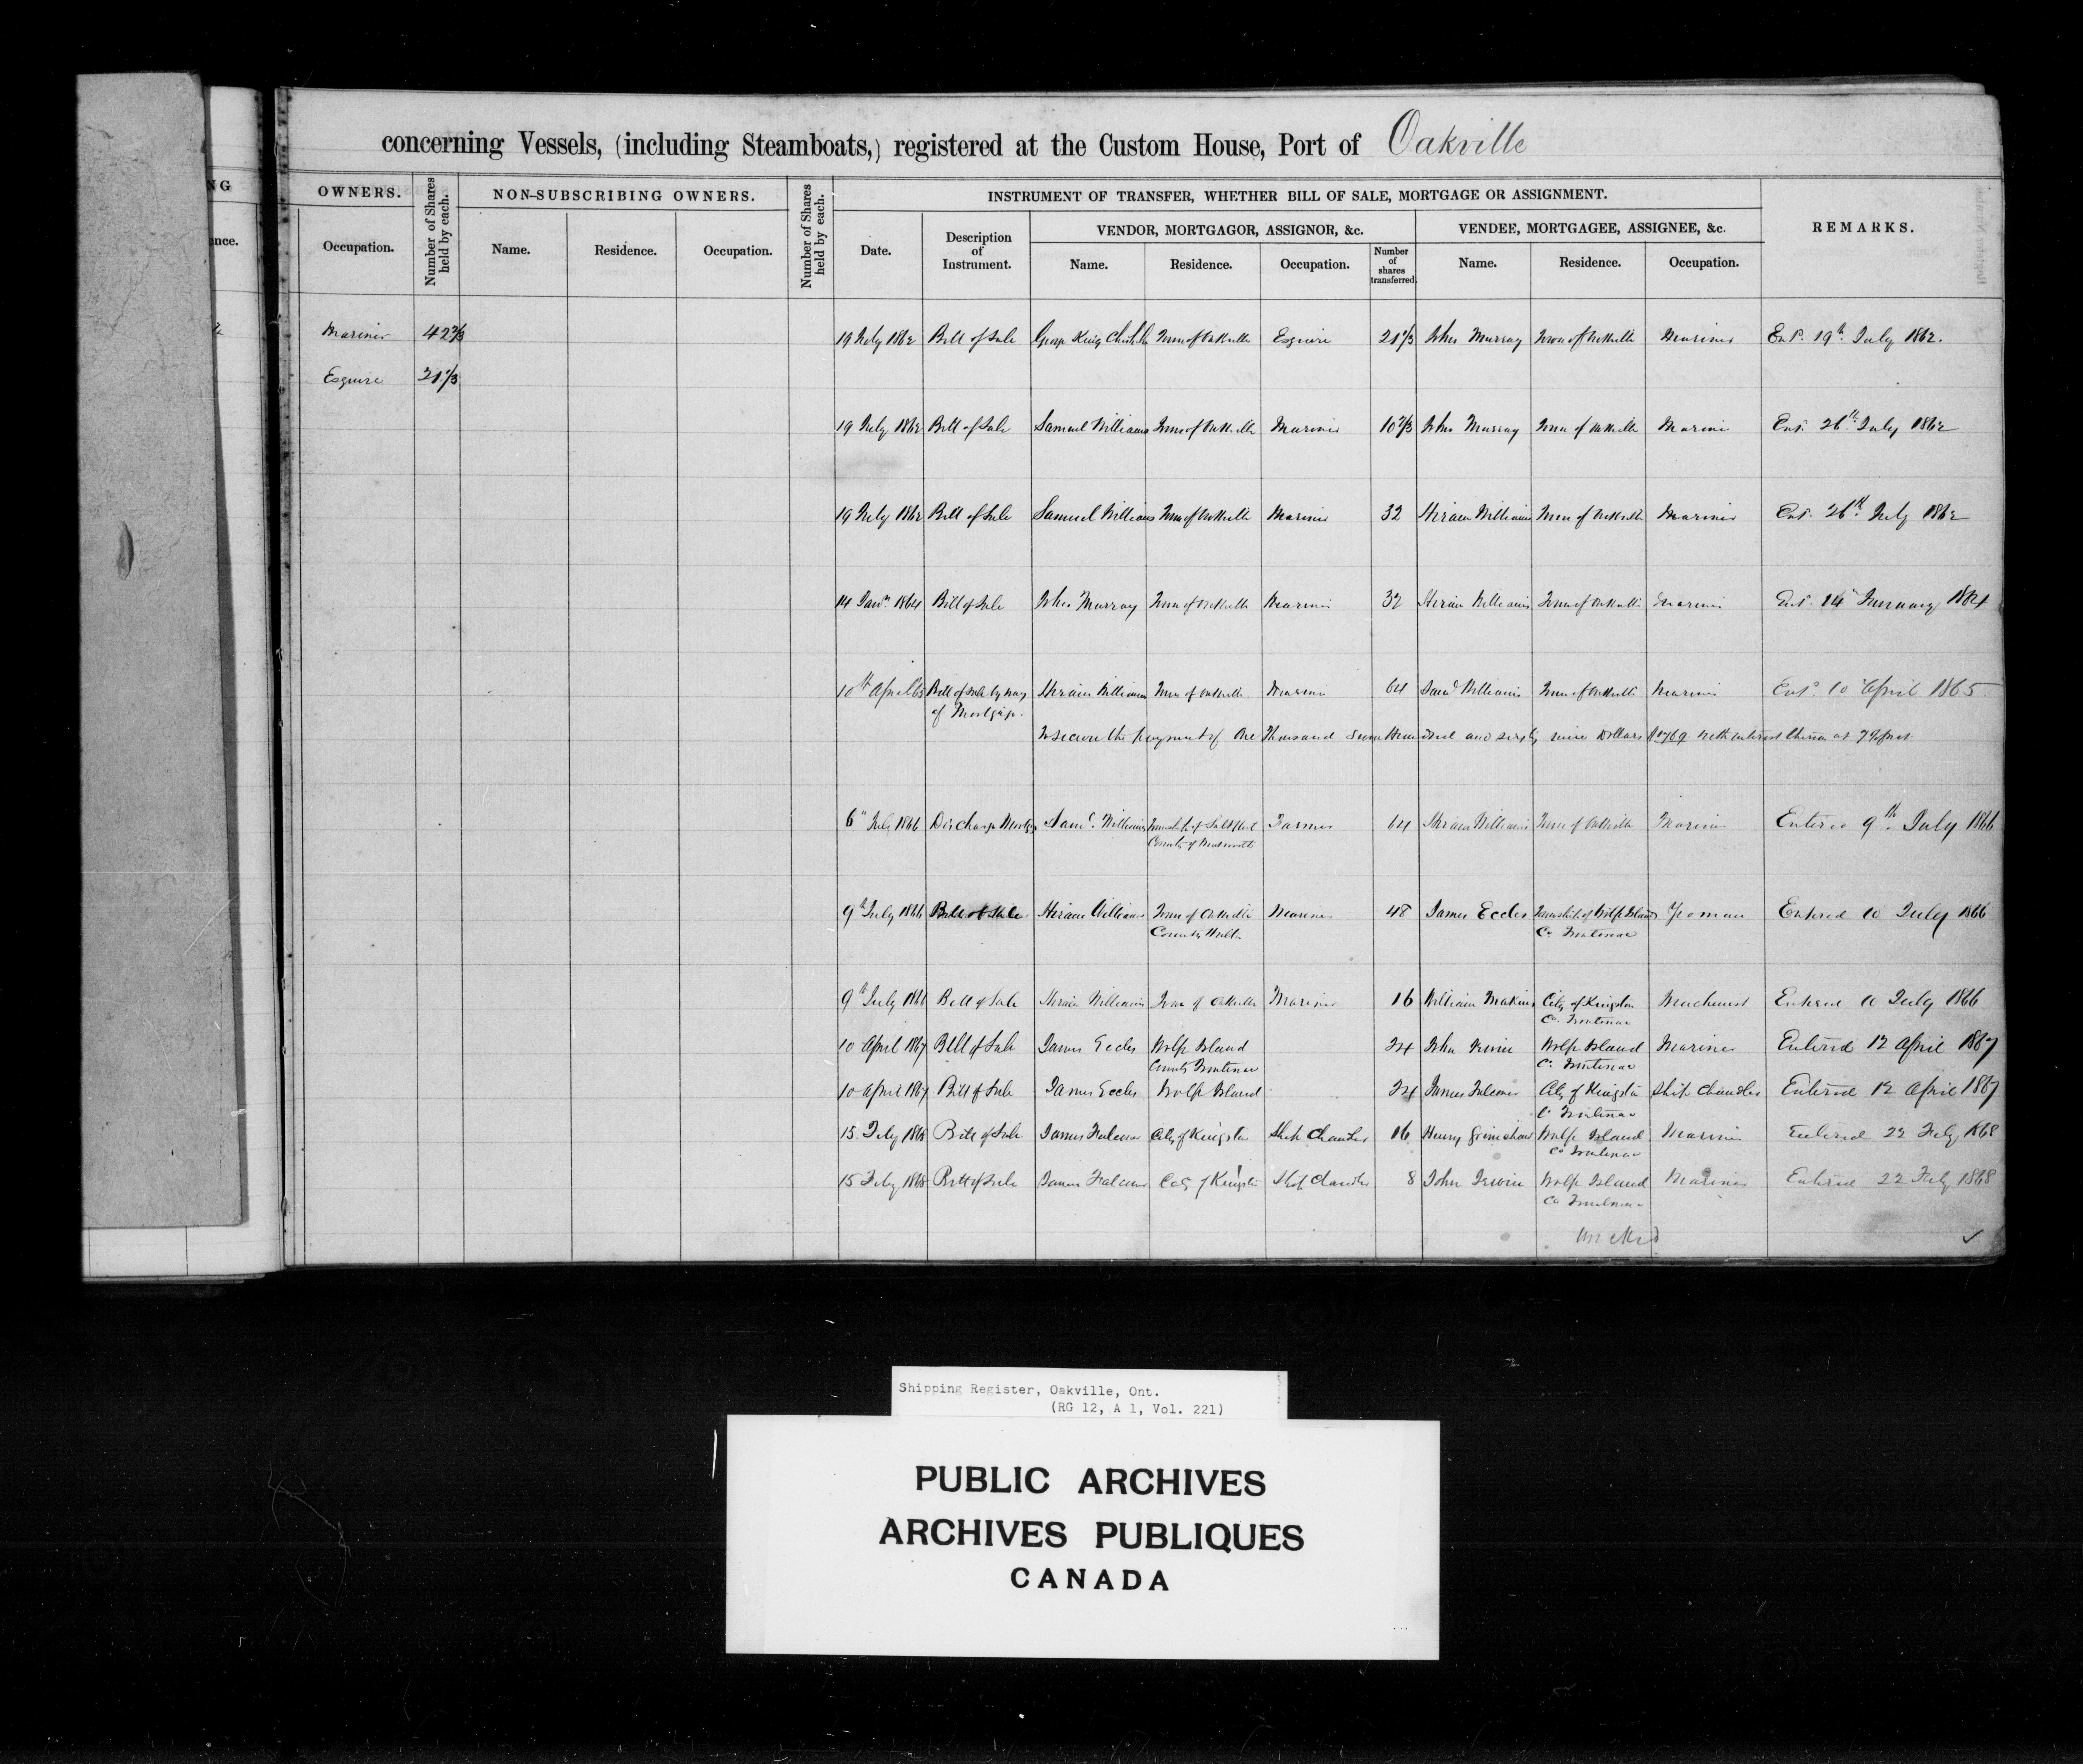 concerning Vessels, (including Steamboats,) registered at the Custom House, Port of Oakville
NG
OWNERS.
Number of Shares held by each.
NON-SUBSCRIBING OWNERS.
Number of Shares held by each.
INSTRUMENT OF TRANSFER, WHETHER BILL OF SALE, MORTGAGE OR ASSIGNMENT.
REMARKS.
VENDOR, MORTGAGOR, ASSIGNOR, &c.
VENDEE, MORTGAGEE, ASSIGNEE, &c.
nce.
Occupation. Name. Residence. Occupation. Date. Description of Instrument. Name. Residence. Occupation. Number of shares transferred. Name. Residence. Occupation.
Mariner 42 2/3 19 July 1862 Bill of Sale George King Town of Oakville Esquire 21 1/3 John Murray Town of Oakville Mariner Entd. 19th July 1862.
Esquire 21 1/3
19 July 1862 Bill of Sale Samuel Williams Town of Oakville Mariner 10 2/3 John Murray Town of Oakville Mariner Entd. 26th July 1862
19 July 1862 Bill of Sale Samuel Williams Town of Oakville Mariner 32 Hiram Williams Town of Oakville Mariner Entd. 26th July 1862
14 Jany 1864 Bill of Sale John Murray Town of Oakville Mariner 32 Hiram Williams Town of Oakville Mariner Entd. 14th January 1864
10th April 65 Bill of Sale by way Hiram Williams Town of Oakville Mariner 64 Saml Williams Town of Oakville Mariner Entd 10 April 1865
of Mortgage.
To secure the payment of One Thousand Seven Hundred and sixty nine Dollars $1769 with interest thereon at 7
6" July 1866 Discharge Mortge Saml. Williams Township of Saltfleet Farmer 64 Hiram Williams Town of Oakville Mariner Entered 9th July 1866
County of Wentworth
9th July 1866 Bill of Sale Hiram Williams Town of Oakville Mariner 48 James Eccles Township of Wolfe Island Yeoman Entered 10 July 1866
County Halton Co Frontenac
9th July 1866 Bill of Sale Hiram Williams Town of Oakville Mariner 16 William Makins City of Kingston Machinist Entered 10 July 1866
Co. Frontenac
10 April 1867 Bill of Sale James Eccles Wolfe Island 24 John Irwin Wolfe Island Mariner Entered 12 April 1867
County Frontenac Co. Frontenac
10 April 1867 Bill of Sale James Eccles Wolfe Island 24 James Falconer City of Kingston Ship Chandler Entered 12 April 1867
Co Frontenac
15 Feby 1868 Bill of Sale James Falconer City of Kingston Ship Chandler 16 Henry Grimshaw Wolfe Island Mariner Entered 22 Feby 1868
Co Frontenac
15 Feby 1868 Bill of Sale James Falconer City of Kingston Ship Chandler 8 John Irwin Wolfe Island Mariner Entered 22 Feby 1868
Co Frontenac
Shipping Register, Oakville, Ont.
(RG 12, A 1, Vol. 221)
PUBLIC ARCHIVES
ARCHIVES PUBLIQUES
CANADA